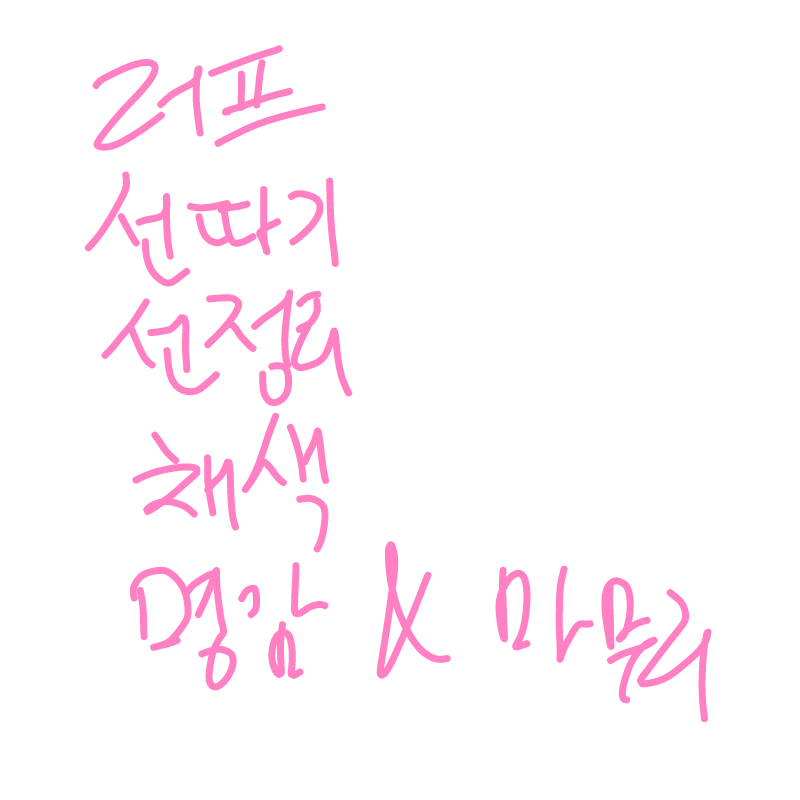 러프
선따기
선정리
채색
명감 & 마무리